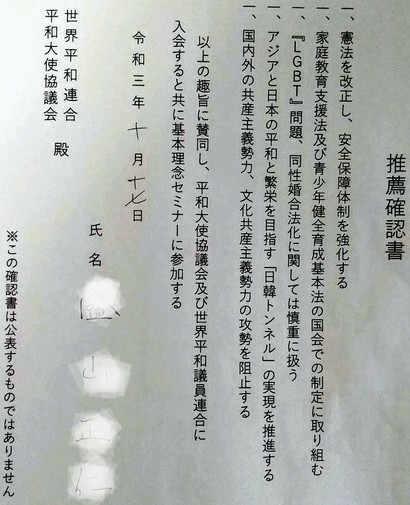 推薦確認書
一、憲法を改正し、安全保障体制を強化する
一、家庭教育支援法及び青少年健全育成基本法の国会での制定に取り組む
一、『LGBT』問題、同性婚合法化に関しては慎重に扱う
一、アジアと日本の平和と繁栄を目指す「日韓トンネル」の実現を推進する
一、国内外の共産主義勢力、文化共産主義勢力の攻勢を阻止する
以上の趣旨に賛同し、平和大使協議会及び世界平和議員連合に
入会すると共に基本理念セミナーに参加する
令和三年十月十七日
世界平和連合
平和大使協議会 殿
氏名 山正仁
※この確認書は公表するものではありません